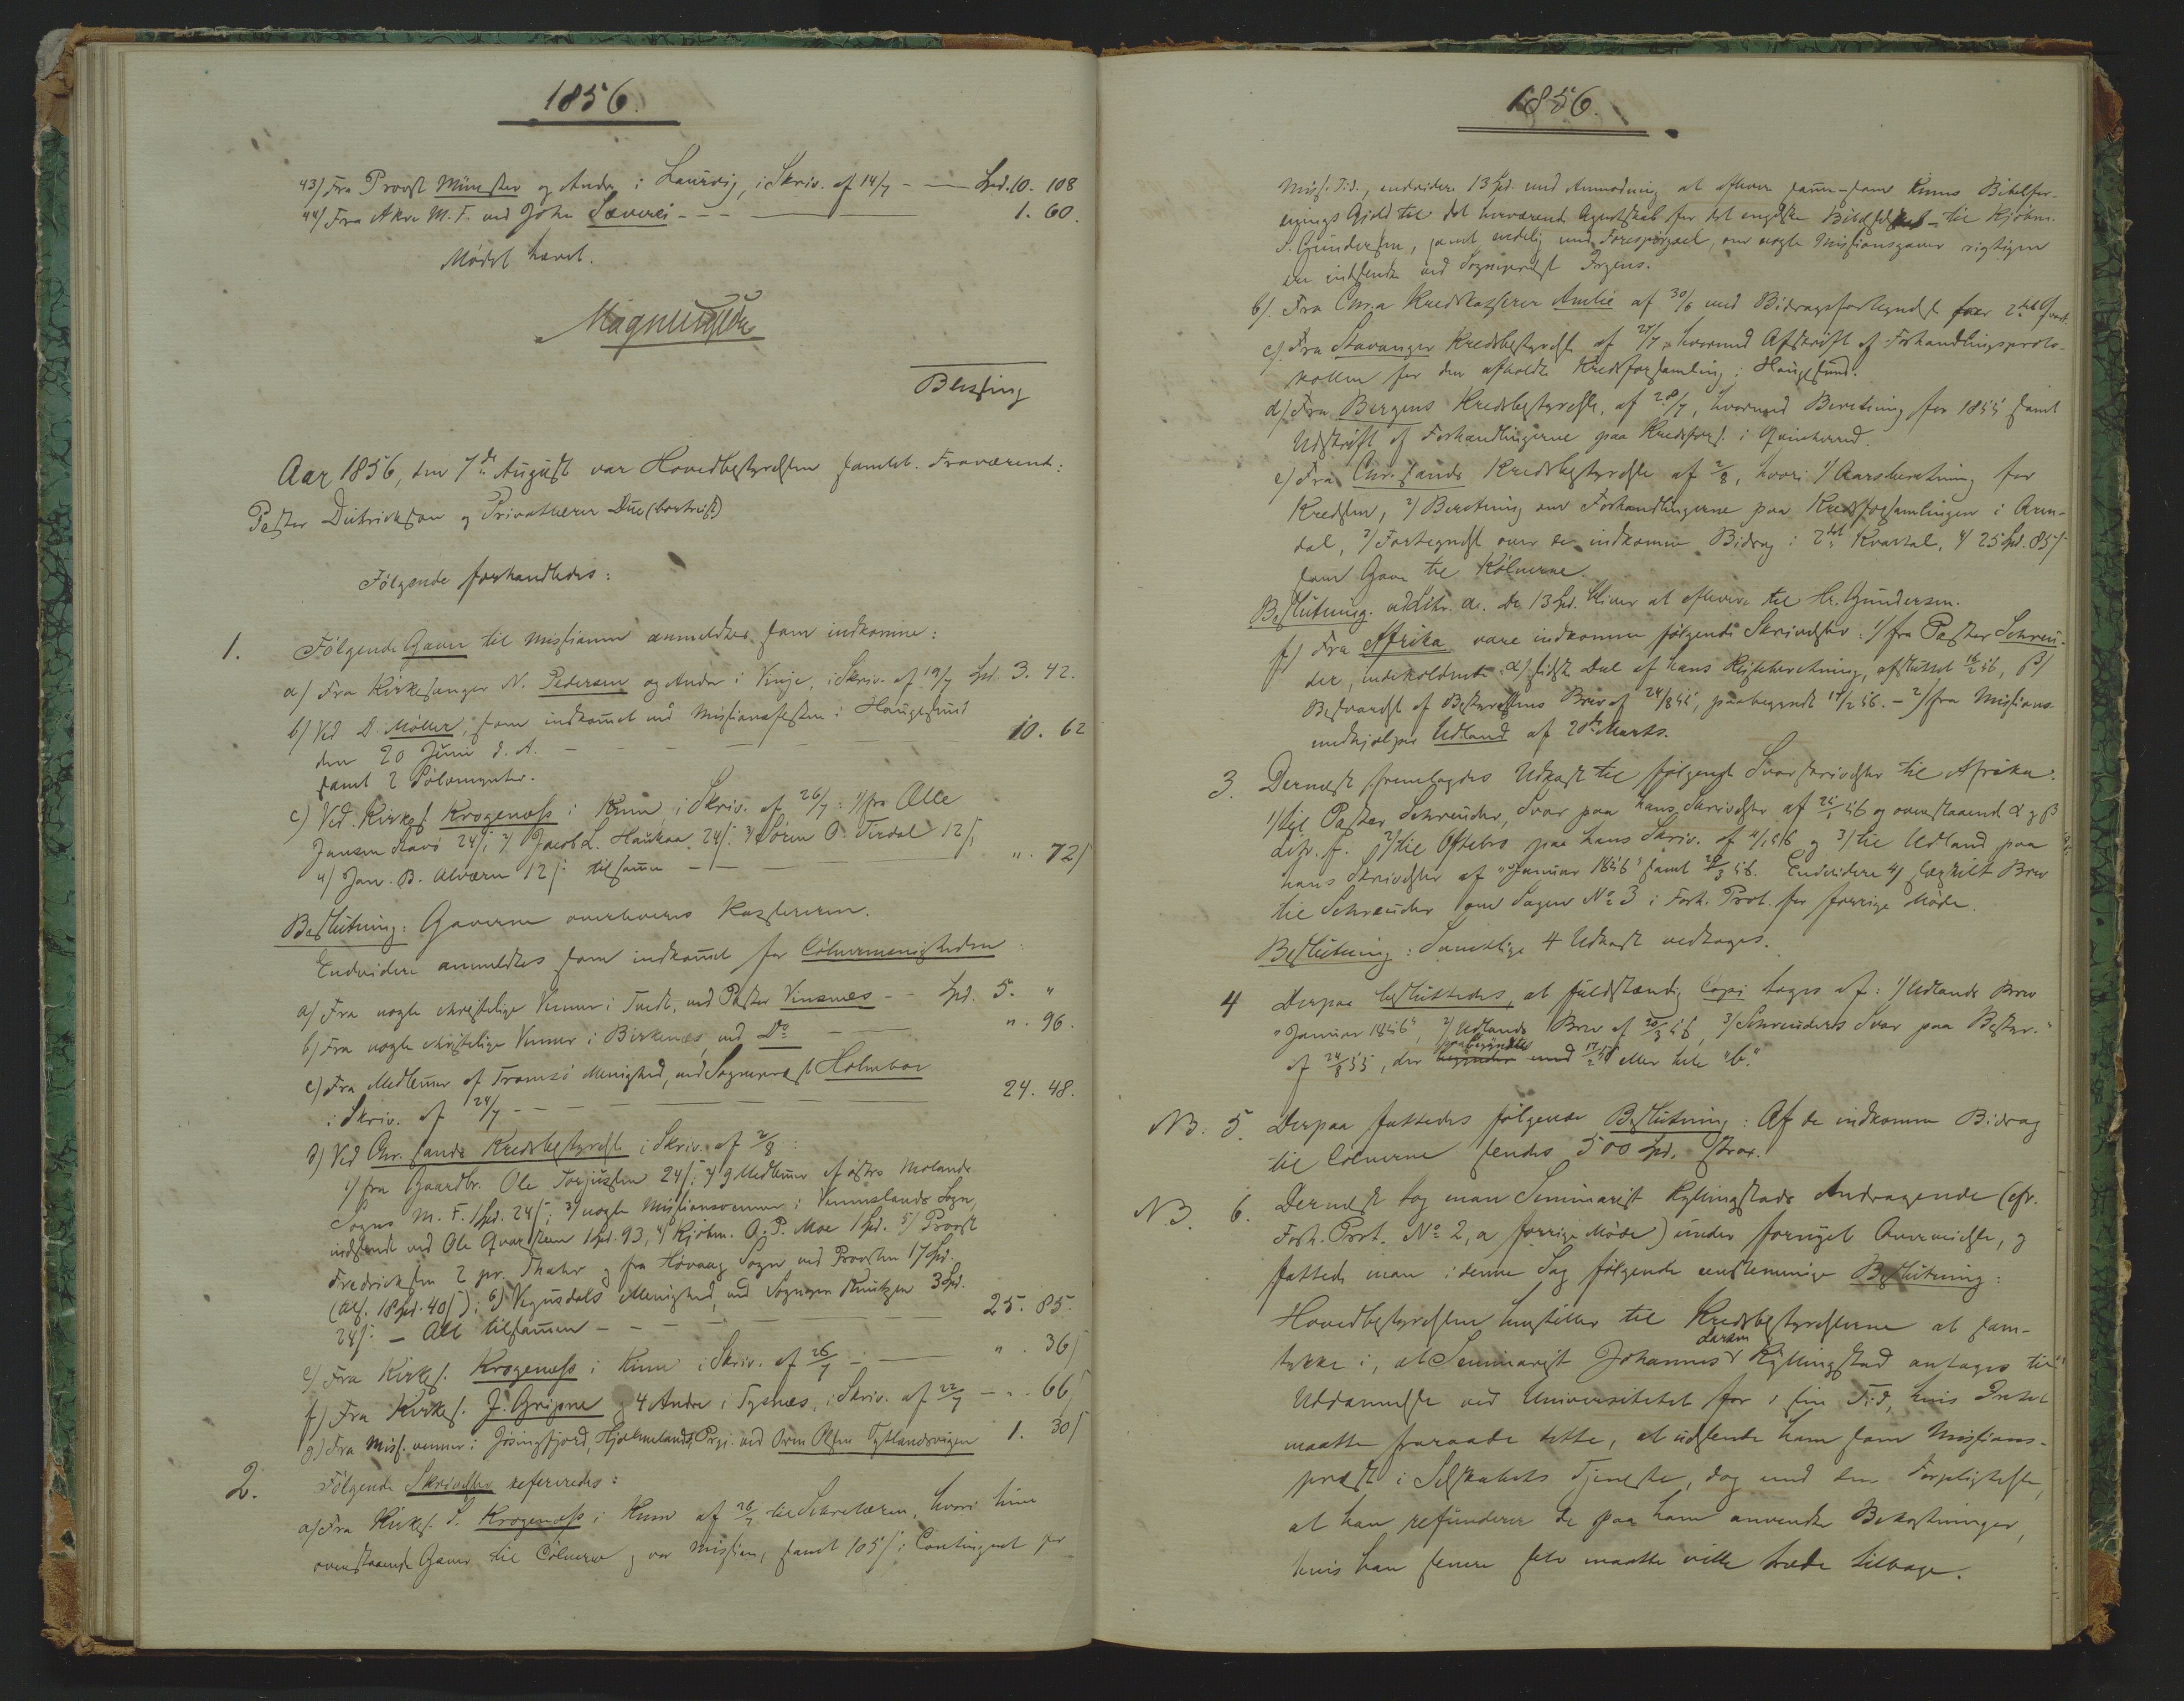 1856.
43) Fra Provst Münster og Andre i Laurvig, i Skriv. af 14/7 - — Spd. 10. 108
44) Fra Akre M. F. ved John Sæverei - - - — 1. 60.
Mødet hævet.
Blessing
Aar 1856, den 7de August var Hovedbestyrelsen samlet. Fraværende:
Pastor Dietrichson og Privatlærer Due (bortreist)
Følgende forhandledes:
1. Følgende Gaver til Missionen anmeldtes som indkomne:
a) Fra Kirkesanger N. Pedersen og Andre i Vinje, i Skriv. af 19/7 Spd. 3. 42.
b) Ved D. Møller, som indkommet ved Missionsfesten i Haugesund
den 20 Juni d. A. - - - - - 10. 62
samt 2 Sølvmynter.
c) Ved Kirkes. Krogenæss i Kinn, i Skriv. af 26/7: 1) fra Alle
Jansen 24 s, 2) Jacob L. Haukaa 24 s. 3) Søren O. Tirdal 12 s,
4) Jan. B. Alværn 12 s: tilsammen - - — ". 72 s
Beslutning: Gaverne overleveres Kassereren.
Endvidere anmeldtes som indkommet for Cölnermenigheden:
a) Fra nogle christelige Venner i Tvedt, ved Pastor Vinsnes - - Spd. 5. "
b) Fra nogle christelige Venner i Birkenæs, ved Do - — ". 96.
c) Fra Medlemmer af Tromsø Menighed, ved Sognepræst Holmboe
i Skriv. af 24/7 - - - — 24. 48.
d) Ved Chr.sands Kredsbestyrelse i Skriv. af 2/8:
1) fra Gaardbr. Ole Torjussen 24 s; 2) 9 Medlemmer af østre Molands
Sogns M. F. 1 Spd. 24 s; 3) nogle Missionsvenner i Vennslands Sogn,
indsendt ved Ole Qvarstein 1 Spd. 93, 4) Kjøbm. O. P. Moe 1 Spd. 5) Provst
Fredriksen 2 pr. Thaler og fra Høvaag Sogn ved Provsten 17 Spd.
(alts. 18 Spd. 40 s); 6) Vegusdals Menighed, ved Sognepr. Knutzen 3 Spd.
24 s: - Alt tilsammen - - - — 25. 85.
e) Fra Kirkes. Krogenæss i Kinn i Skriv. af 26/7 - — ". 36 s
f) Fra Kirkes. J. Gripne og 4 Andre i Tysnæs, i Skriv. af 22/7 - ". 66 s
g) Fra Miss. venner i Jøsingfjord, Hjelmelands Prgj. ved Orm Olsen Tytlandsvigen 1. 30 s
2. Følgende Skrivelser refereredes:
a) Fra Kirkes. S. Krogenæss i Kinn af 26/7 til Sekretæren, hvori hine
ovenstaaende Gaver til Cölnerne og vor Mission, samt 105 s i Contingent for
1856.
Miss. Tid., endvidere 13 Spd. med Anmodning at aflevere samme som Kinns Bibelfor-
enings Gjæld til det herværende Agentskab for det engelske Bibelselskab til Kjøbm.
S. Gundersen, samt endelig med Forespørgsel, om nogle Missionsgaver rigtigen
ere indsendte ved Sogneprest Irgens.
b). Fra Chr.a Kredskasserer Amlie af 30/6 med Bidragsfortegnelse for 2det Qvart.
c). Fra Stavanger Kredsbestyrelse af 27/7, hvormed Afskrift af Forhandlingsproto-
kollen for den afholdte Kredsforsamling i Haugesund.
d) Fra Bergens Kredsbestyrelse, af 28/7, hvormed Beretning for 1855 samt
Udskrift af Forhandlingerne paa Kredsfors. i Qvinherred.
e) Fra Chr.sands Kredsbestyrelse af 2/8, hvori 1) Aarsberetning for
Kredsen, 2) Beretning om Forhandlingerne paa Kredsforsamlingen i Aren-
dal, 3) Fortegnelse over de indkomne Bidrag i 2det Kvartal, 4) 25 Spd. 85 s
som Gave til Kölnerne.
Beslutning. ad Litr. a. De 13 Spd. bliver at aflevere til Hr. Gundersen.
f) Fra Afrika vare indkomne følgende Skrivelser: 1) fra Pastor Schreu-
der, indeholdende: α) sidste Deel af hans Reiseberetning, afsluttet 16/2 56, β)
Besvarelse af Bestyrelsens Brev af 24/8 55, paabegyndt 17/2 56. - 2) fra Missions
medhjælper Udland af 20de Marts.
3. Dernæst fremlagdes Udkast til følgende Svarskrivelser til Afrika:
1) til Pastor Schreuder, Svar paa hans Skrivelser af 25/1 56 og ovenstaaende α og β
Litr. f. 2) til Oftebro paa hans Skriv. af 4/1 56 og 3) til Udland paa
hans Skrivelser af "Januar 1856" samt 20/3 56. Endvidere 4) særskilt Brev
til Schreuder om Sagen No 3 i Forh. Prot. for forrige Møde.
Beslutning: Samtlige 4 Udkast vedtoges.
4 Derpaa besluttedes, at fuldstændig Copi tages af: 1) Udlands Brev
"Januar 1856", 2) Udlands Brev af 20/3 56, 3) Schreuders Svar paa Bestyr.
af 24/8 55, der begynder med paabegyndtes 17/2 56 eller hele "b."
NB. 5. Derpaa fattedes følgende Beslutning: Af de indkomne Bidrag
til Cölnerne sendes 500 Spd. strax.
NB. 6. Dernæst tog man Seminarist Kyllingstads Andragende (cfr.
Forh. Prot. No 2, a forrige Møde) under fornyet Overveielse, og
fattede man i denne Sag følgende eenstemmige Beslutning:
Hovedbestyrelsen henstiller til Kredsbestyrelserne at sam-
tykke i, at Seminarist Johannes Larsen Kyllingstad antages til
Uddannelse ved Universitetet for i sin Tid, hvis Intet
maatte fraraade dette, at udsendes ham som Missions-
præst i Selskabets Tjeneste, dog med den Forpligtelse,
at han refunderer de paa ham anvendte Bekostninger,
hvis han senere selv maatte ville træde tilbage.